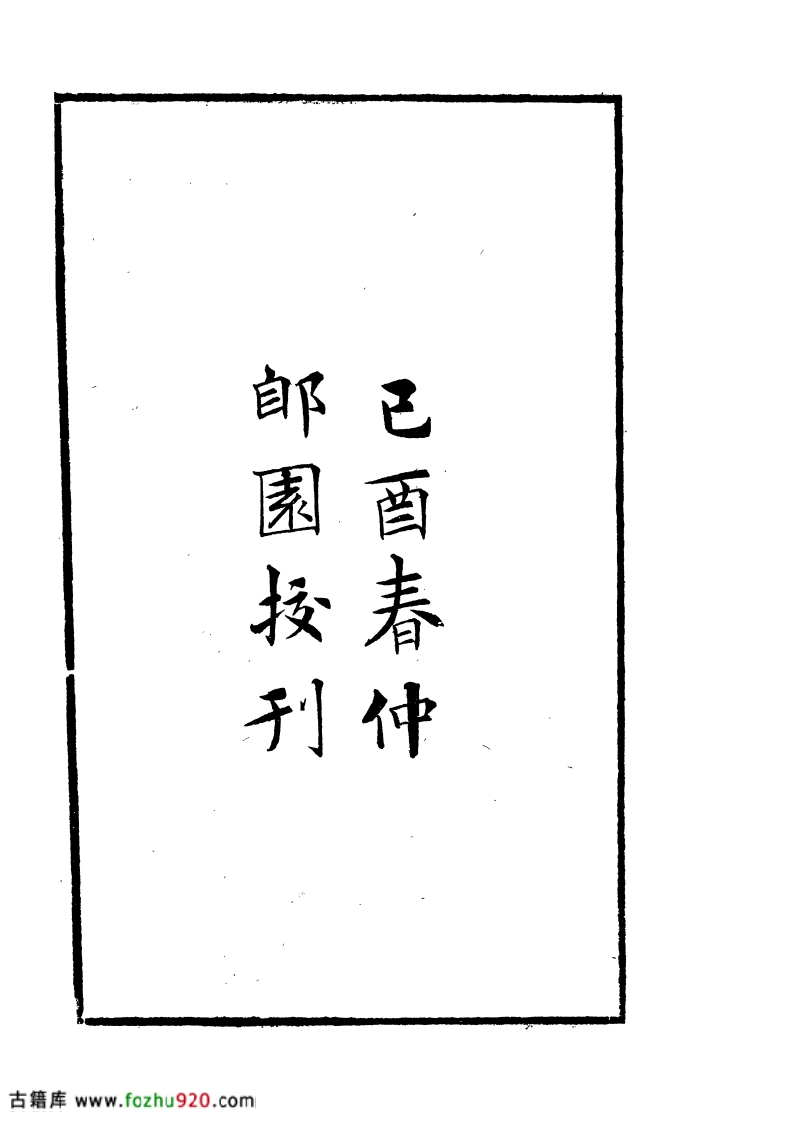 己酉春仲
郋園挍刊
古籍库 www.fozhu920.com